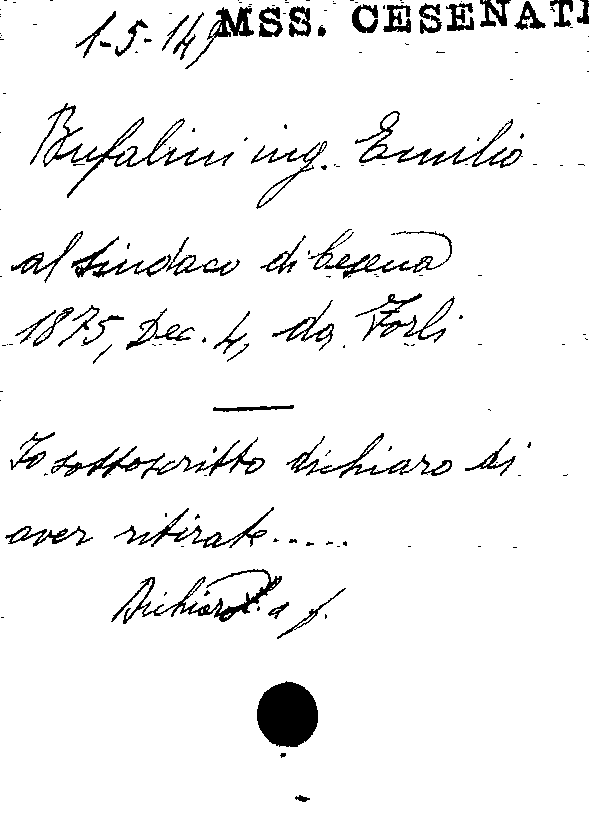 1-5-149 MSS. CESENATI
Bufalini ing. Emilio
al sindaco di Cesena
1875, Dec. 4, da Forlì
Io sottoscritto dichiaro di
aver ritirate.....
Dichiaraz. a f.